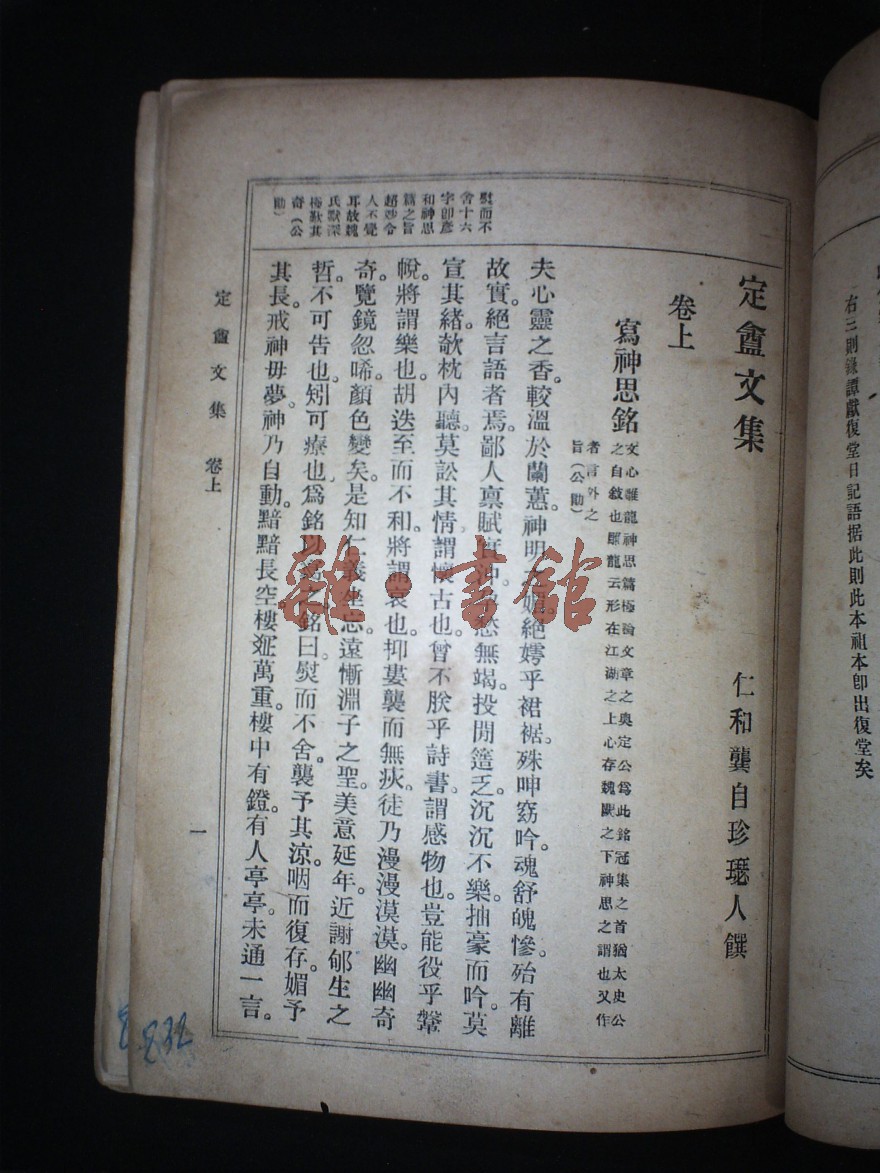 右三則錄譚獻復堂日記語据此則此本祖本卽出復堂矣
定盦文集
仁和龔自珍瑟人饌
卷上
寫神思銘
文心雕龍神思篇極論文章之奧定公爲此銘冠集之首猶太史公
之自敘也雕龍云形在江湖之上心存魏闕之下神思之謂也又作
者言外之
旨（公勛）
夫心靈之香。較溫於蘭蕙。神明之媚。絕嫮乎裙裾。殊呻窈吟。魂舒魄慘。殆有離
故實。絕言語者焉。鄙人禀賦實沖。孕愁無竭。投閒簉乏。沉沉不樂。抽豪而吟。莫
宣其緒。欹枕內聽。莫訟其情。謂懷古也。曾不朕乎詩書。謂感物也。豈能役乎鞶
帨。將謂樂也。胡迭至而不和。將謂哀也。抑屢襲而無疢。徒乃漫漫漠漠。幽幽奇
奇。覽鏡忽唏。顏色變矣。是知仁義坐忘。遠慚淵子之聖。美意延年。近謝郇生之
哲。不可告也。矧可療也。爲銘以寫之。銘曰。熨而不舍。襲予其涼。咽而復存。媚予
其長。戒神毋夢。神乃自動。黯黯長空。樓遊萬重。樓中有鐙。有人亭亭。未通一言。
熨而不
舍十六
字卽彥
和神思
篇之旨
超妙令
人不覺
耳故魏
氏默深
極歎其
奇（公
勛）
定盦文集 卷上
一
雜·書館